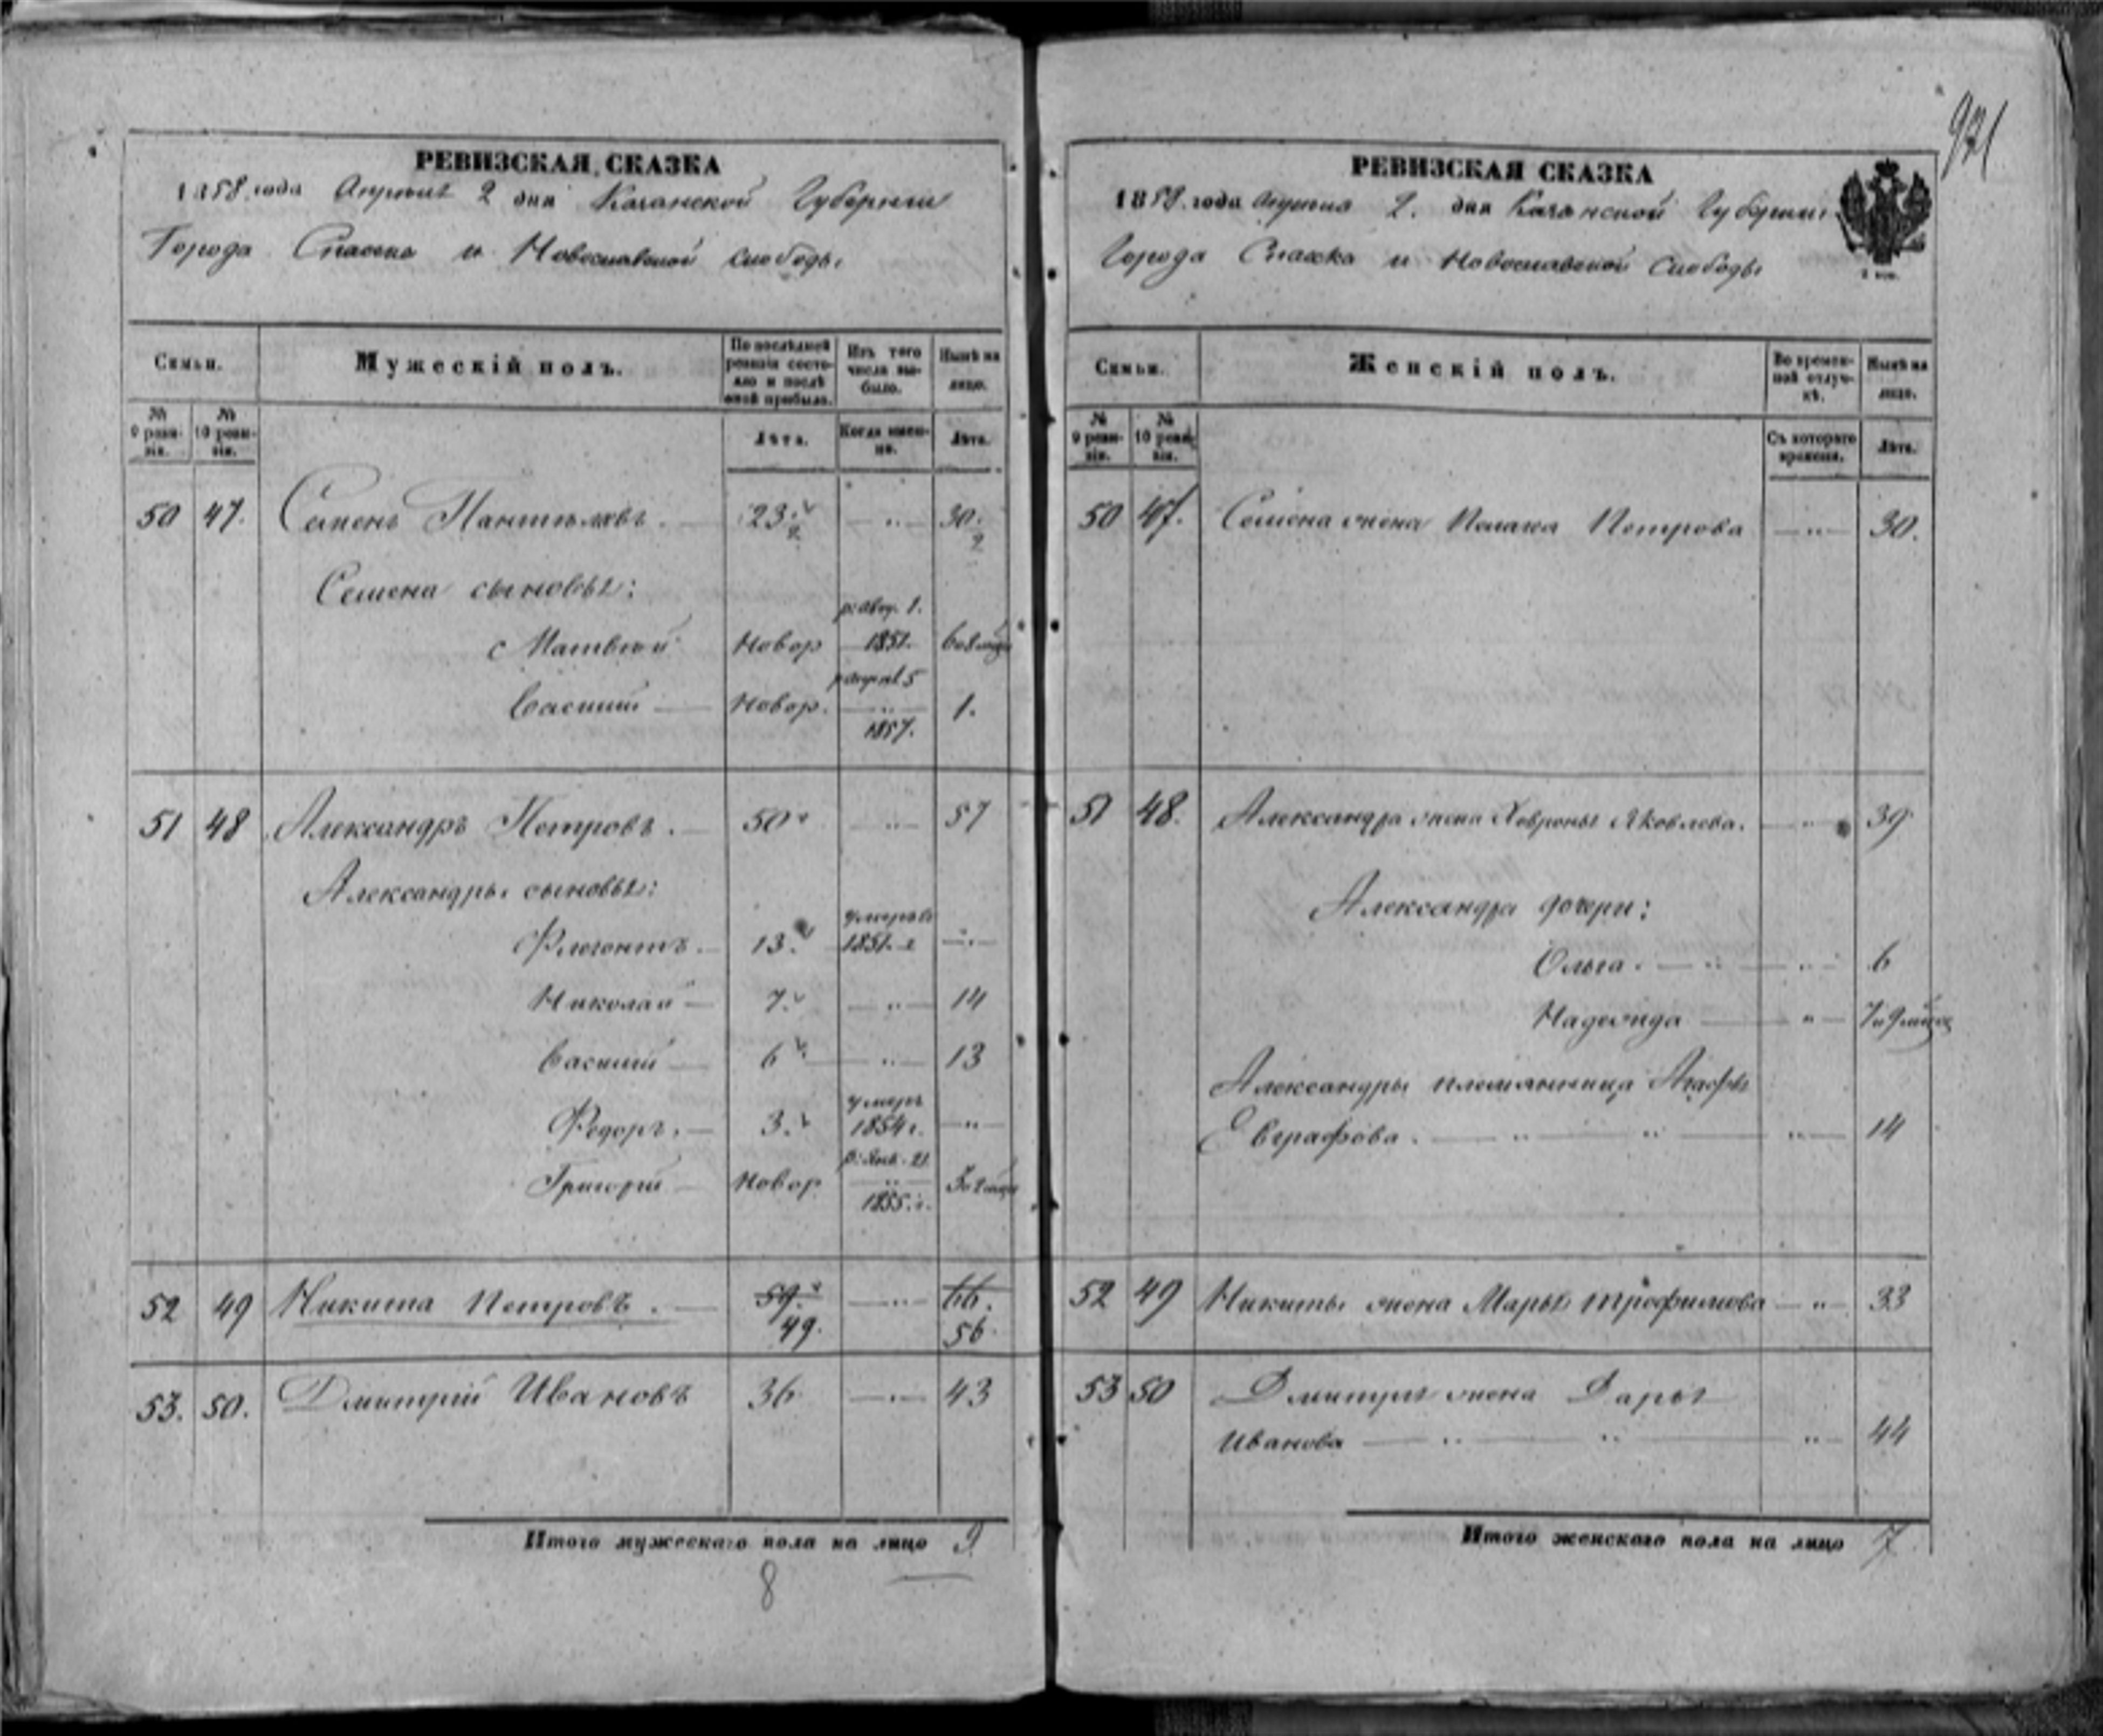 РЕВИЗСКАЯ СКАЗКА
1858 года Апреля 2 дня Казанской Губернии
Города Спасска и Новоспасской слободы
Семьи.
Мужескій полъ.
По послѣдней ревизіи состояло и послѣ оной прибыло.
Изъ того числа выбыло.
Нынѣ на лицо.
№ 9 ревизіи.
№ 10 ревизіи.
Лѣта.
Когда именно.
Лѣта.
50 47. Семенъ 23. — " — 30.
2 2
Семена сыновья:
р: Авгу. 1.
Матвей Новор 1851. 6 и 8 мѣся
р апрел. 5
Василий — Новор. — " — 1.
1857.
51 48 Александръ Петровъ. — 50 — " — 57
Александры сыновья:
умеръ въ
Флегонтъ. — 13. 1851. г — " —
Николай — 7. — " — 14
Василий — 6 — " — 13
умеръ
Федоръ. — 3. 1854 г. — " —
р: Янв. 21
Григорий — Новор — " — 3 и 2 мѣся
1855. г.
52 49 Никита Петровъ. — 59. — " — 66.
49. 56.
53. 50. Дмитрій Ивановъ 36 — " — 43
Итого мужескаго пола на лицо 9
8
971
РЕВИЗСКАЯ СКАЗКА
1858. года Апреля 2. дня Казанской Губернии
Города Спасска и Новоспасской Слободы
Семьи.
Женскій полъ.
Во временной отлучкѣ.
Нынѣ на лицо.
№ 9 ревизіи.
№ 10 ревизіи.
Съ котораго времени.
Лѣта.
50 47. Семена жена Петрова — " — 30.
51 48. Александра жена Яковлева. — " — 39.
Александра дочери:
Ольга. — " — " — 6
Надежда — " — 7 и 9 мѣся
Александры племянница Агафья
Евграфова. — " — " — " — 14
52 49 Никиты жена Марья Трофимова — " — 33
53 50 Дмитрия жена Дарья
Иванова — " — " — " — 44
Итого женскаго пола на лицо 7